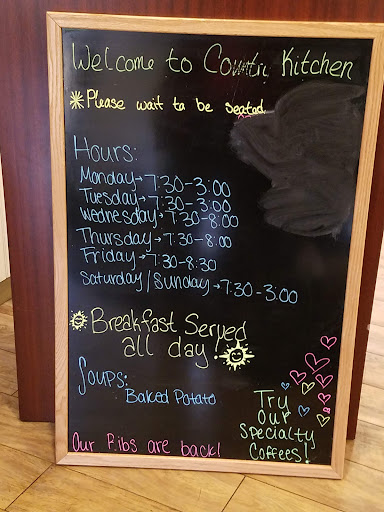 Welcome to Country Kitchen
Please wait to be seated.
Hours:
Monday→7:30-3:00
Tuesday→7:30-3:00
Wednesday→7:30-8:00
Thursday→7:30-8:00
Friday→7:30-8:30
Saturday/Sunday→7:30-3:00
Breakfast Served
all day!
Soups:
Baked Potato
Try
Our
Specialty
Coffees!
Our Ribs are back!